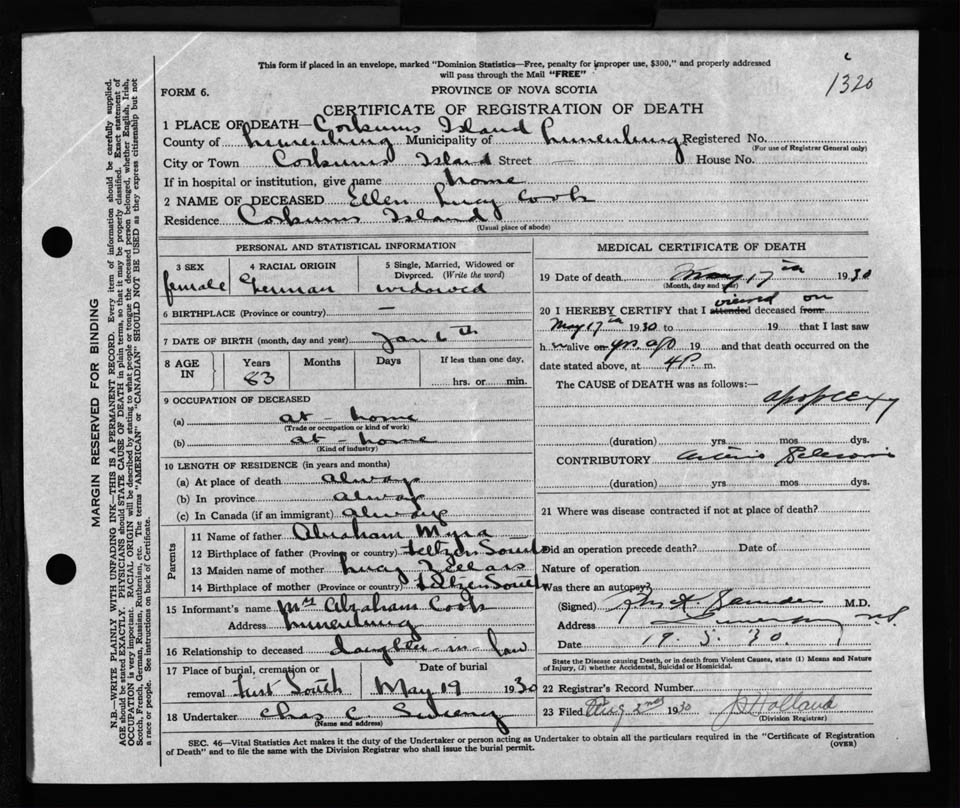 This form if placed in an envelope, marked "Dominion Statistics—Free, penalty for improper use, $300," and properly addressed
will pass through the Mail "FREE"
1320
FORM 6.
PROVINCE OF NOVA SCOTIA
CERTIFICATE OF REGISTRATION OF DEATH
1 PLACE OF DEATH— Corkums Island
County of Lunenburg Municipality of Lunenburg Registered No.
(For use of Registrar General only)
City or Town Corkums Island Street House No.
If in hospital or institution, give name home
2 NAME OF DECEASED Ellen Lucy Cook
Residence Corkums Island
(Usual place of abode)
PERSONAL AND STATISTICAL INFORMATION
3 SEX
female
4 RACIAL ORIGIN
German
5 Single, Married, Widowed or
Divorced. (Write the word)
widowed
6 BIRTHPLACE (Province or country) —
7 DATE OF BIRTH (month, day and year) Jan 6th
8 AGE
IN
Years
83
Months
Days
If less than one day,
hrs. or min.
9 OCCUPATION OF DECEASED
(a) at - home
(Trade or occupation or kind of work)
(b) at - home
(Kind of industry)
10 LENGTH OF RESIDENCE (in years and months)
(a) At place of death always
(b) In province always
(c) In Canada (if an immigrant) always
Parents
11 Name of father Abraham Myra
12 Birthplace of father (Province or country) Feltzen South
13 Maiden name of mother Lucy
14 Birthplace of mother (Province or country) Feltzen South
15 Informant's name Mrs Abraham Cook
Address Lunenburg
16 Relationship to deceased daughter in law
17 Place of burial, cremation or
removal First South
Date of burial
May 19 1930
18 Undertaker Chas C. Sweeny
(Name and address)
MEDICAL CERTIFICATE OF DEATH
19 Date of death May 17th 1930
(Month, day and year)
20 I HEREBY CERTIFY that I attended viewed deceased from on
May 17th 1930 to 19 that I last saw
h alive on yrs. ago 19 and that death occurred on the
date stated above, at 4 P. m.
The CAUSE of DEATH was as follows:—
apoplexy
(duration) yrs mos dys.
CONTRIBUTORY Arterio Sclerosis
(duration) yrs. mos. dys.
21 Where was disease contracted if not at place of death?
Did an operation precede death? Date of
Nature of operation
Was there an autopsy?
(Signed) M.D.
Address Lunenburg N.S.
Date 19. 5. 30.
State the Disease causing Death, or in death from Violent Causes, state (1) Means and Nature
of Injury, (2) whether Accidental, Suicidal or Homicidal.
22 Registrar's Record Number
23 Filed Aug 2nd 1930 Holland
(Division Registrar)
SEC. 46—Vital Statistics Act makes it the duty of the Undertaker or person acting as Undertaker to obtain all the particulars required in the "Certificate of Registration
of Death" and to file the same with the Division Registrar who shall issue the burial permit.
(OVER)
MARGIN RESERVED FOR BINDING
N.B.—WRITE PLAINLY WITH UNFADING INK—THIS IS A PERMANENT RECORD. Every item of information should be carefully supplied.
AGE should be stated EXACTLY. PHYSICIANS should STATE CAUSE OF DEATH in plain terms, so that it may be properly classified. Exact statement of
OCCUPATION is very important. RACIAL ORIGIN will be described by stating to what people or tongue the deceased person belonged, whether English, Irish,
Scotch, French, German, Russian, Ruthenian, etc. The terms "AMERICAN" or "CANADIAN" SHOULD NOT BE USED as they express citizenship but not
a race or people. See instructions on back of Certificate.